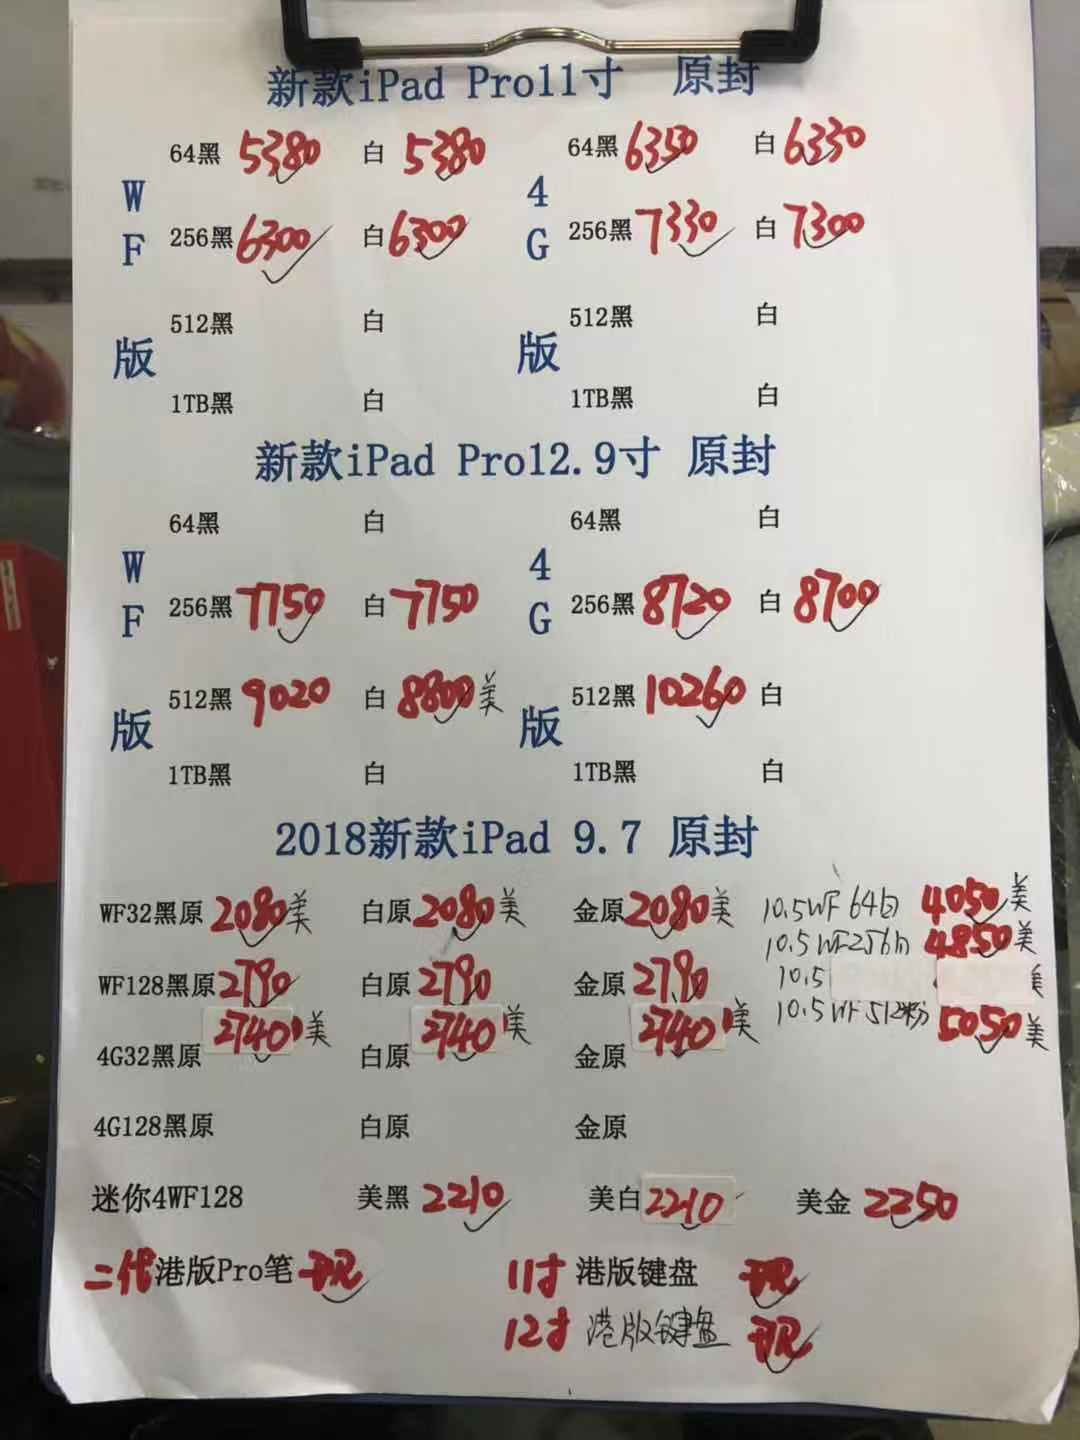 新款iPad Pro11寸 原封
64黑 5380 白 5380 64黑 6350 白 6330
WF版 4G版
256黑 6300 白 6300 256黑 7330 白 7300
512黑 白 512黑 白
1TB黑 白 1TB黑 白
新款iPad Pro12.9寸 原封
64黑 白 64黑 白
WF版 4G版
256黑 7750 白 7750 256黑 8720 白 8700
512黑 9020 白 8800美 512黑 10260 白
1TB黑 白 1TB黑 白
2018新款iPad 9.7 原封
WF32黑原 2080美 白原 2080美 金原 2080美 10.5WF 64白 4050美
10.5WF256白 4850美
WF128黑原 2790 白原 2790 金原 2790 10.5 美
2740美 2740美 2740美 10.5WF 512粉 5050美
4G32黑原 白原 金原
4G128黑原 白原 金原
迷你4WF128 美黑 2210 美白 2210 美金 2250
二代港版Pro笔 现 11寸 港版键盘 现
12寸 港版键盘 现